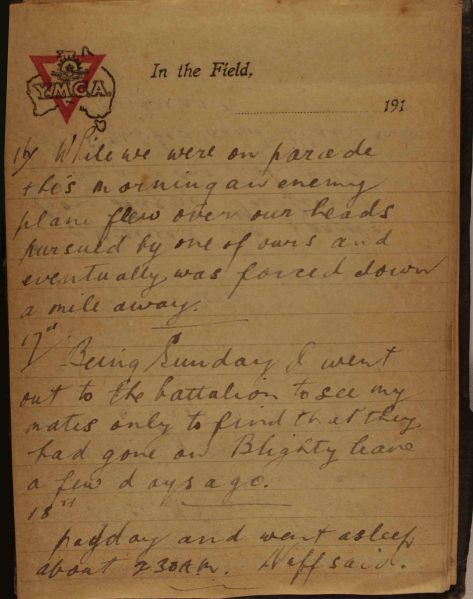 Y.M.C.A.
In the Field,
.................... 191
16/ While we were on parade
this morning an enemy
plane flew over our heads
pursued by one of ours and
eventually was forced down
a mile away.
17th
Being Sunday I went
out to the battalion to see my
mates only to find that they
had gone on Blighty leave
a few days ago.
18th
payday and went asleep
about 2 30 A.M. Nuff said.